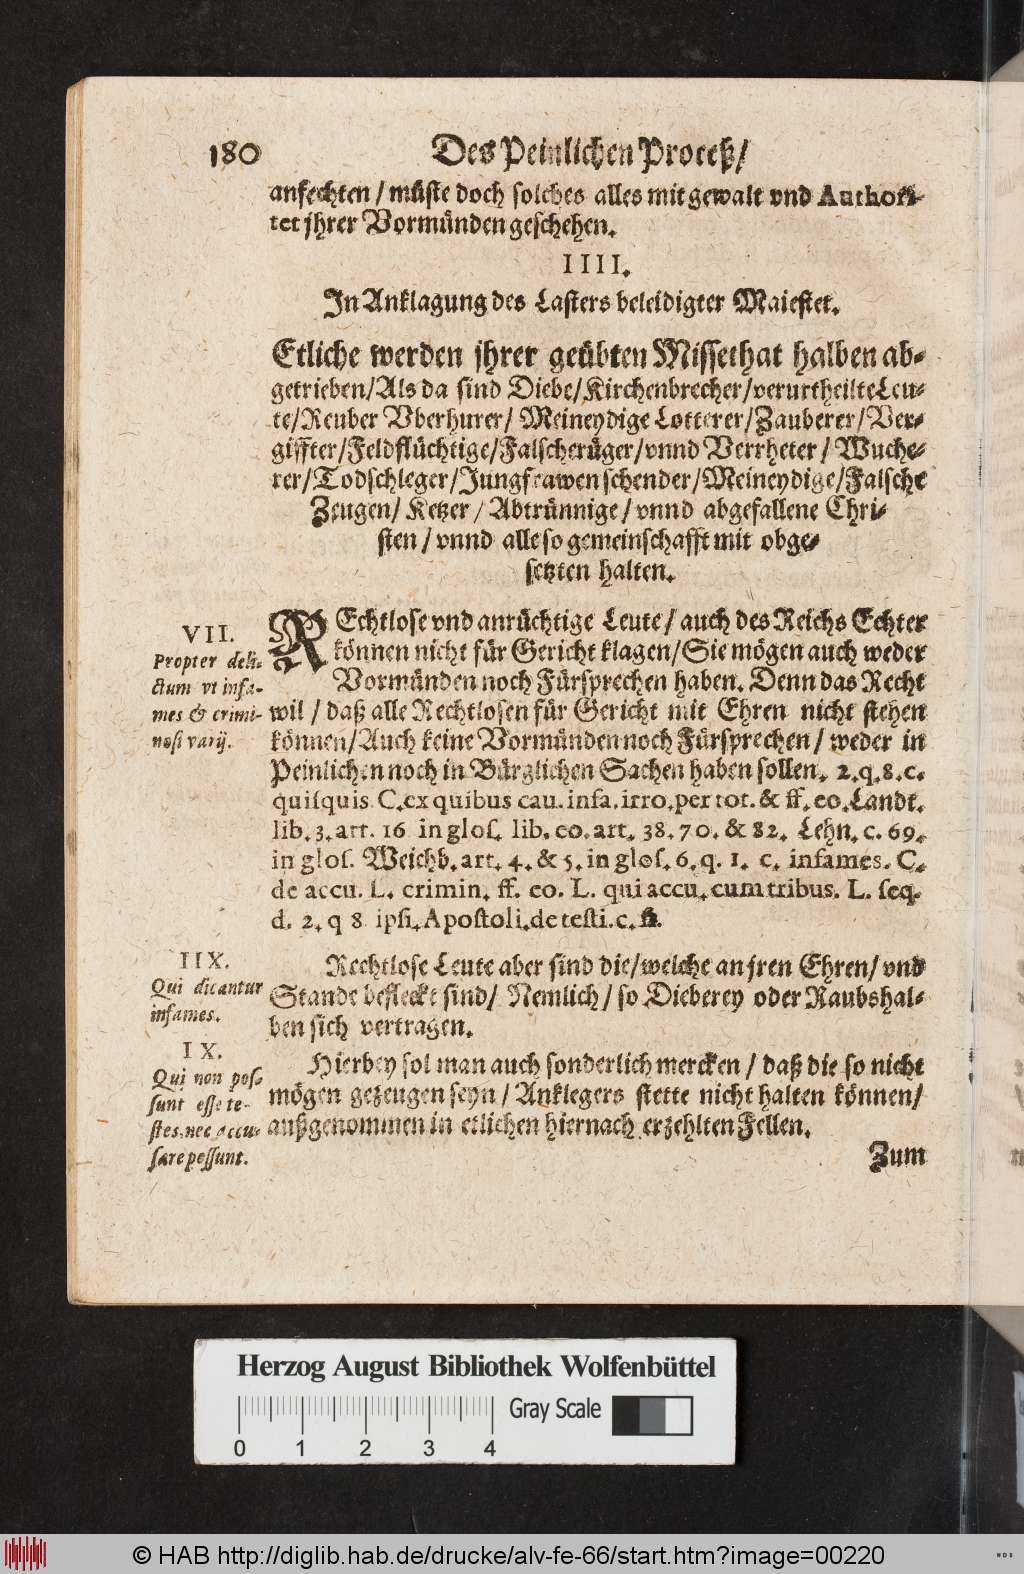 180
Des Peinlichen Proceß/
anfechten / müste doch solches alles mit gewalt vnd Authori-
tet jhrer Vormünden geschehen.
IIII.
In Anklagung des Lasters beleidigter Maiestet.
Etliche werden jhrer geübten Missethat halben ab-
getrieben/Als da sind Diebe/Kirchenbrecher/verurtheilte Leu-
te/Reuber Vberhurer/ Meineydige Lotterer/Zauberer/Ver-
giffter/Feldflüchtige/Falscherüger/vnnd Verrheter / Wuche-
rer/Todschleger/Jungfrawen schender/Meineydige/Falsche
Zeugen/ Ketzer / Abtrünnige / vnnd abgefallene Chri-
sten / vnnd alle so gemeinschafft mit obge-
setzten halten.
VII.
Propter deli-
ctum vt infa-
mes & crimi-
nosi varij.
REchtlose vnd anrüchtige Leute / auch des Reichs Echter
können nicht für Gericht klagen/Sie mögen auch weder
Vormünden noch Fürsprechen haben. Denn das Recht
wil / daß alle Rechtlosen für Gericht mit Ehren nicht stehen
können/Auch keine Vormünden noch Fürsprechen / weder in
Peinlichen noch in Bürglichen Sachen haben sollen. 2.q.8.c.
quisquis C.ex quibus cau. infa. irro.per tot. & ff. eo.Landt.
lib.3.art. 16 in glos. lib. eo.art. 38.70. & 82. Lehn. c. 69.
in glos. Weichb.art. 4. & 5. in glos. 6.q. 1. c. infames. C.
de accu. L. crimin. ff. eo. L. qui accu.cum tribus. L. seq.
d. 2. q 8 ipsi.Apostoli.de testi.c.
IIX.
Qui dicantur
infames.
Rechtlose Leute aber sind die/welche an jren Ehren/ vnd
Stande befleckt sind/ Nemlich / so Dieberey oder Raubshal-
ben sich vertragen.
IX.
Qui non pos-
sunt esse te-
stes.nec accu-
sare possunt.
Hierbey sol man auch sonderlich mercken / daß die so nicht
mögen gezeugen seyn / Anklegers stette nicht halten können/
außgenommen in etlichen hiernach erzehlten Fellen.
Zum
Herzog August Bibliothek Wolfenbüttel
Gray Scale
0 1 2 3 4
© HAB http://diglib.hab.de/drucke/alv-fe-66/start.htm?image=00220